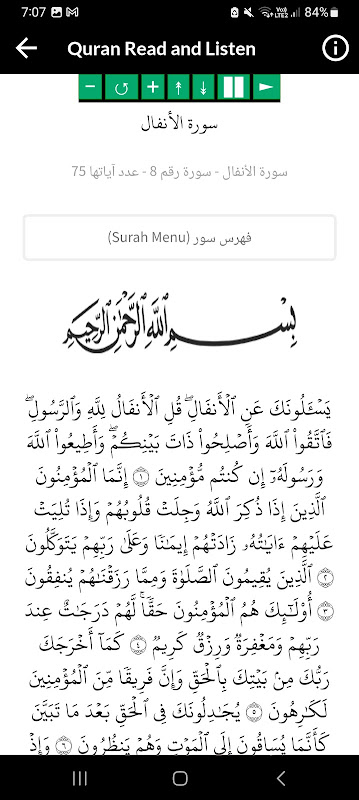 7:07 84%
Quran Read and Listen
سورة الأنفال
سورة الأنفال - سورة رقم 8 - عدد آياتها 75
فهرس سور (Surah Menu)
بِسْمِ ٱللَّهِ ٱلرَّحْمَٰنِ ٱلرَّحِيمِ
يَسْـَٔلُونَكَ عَنِ ٱلْأَنفَالِ ۖ قُلِ ٱلْأَنفَالُ لِلَّهِ وَٱلرَّسُولِ ۖ
فَٱتَّقُوا۟ ٱللَّهَ وَأَصْلِحُوا۟ ذَاتَ بَيْنِكُمْ ۖ وَأَطِيعُوا۟ ٱللَّهَ
وَرَسُولَهُۥٓ إِن كُنتُم مُّؤْمِنِينَ ۝١ إِنَّمَا ٱلْمُؤْمِنُونَ
ٱلَّذِينَ إِذَا ذُكِرَ ٱللَّهُ وَجِلَتْ قُلُوبُهُمْ وَإِذَا تُلِيَتْ
عَلَيْهِمْ ءَايَـٰتُهُۥ زَادَتْهُمْ إِيمَـٰنًا وَعَلَىٰ رَبِّهِمْ يَتَوَكَّلُونَ
۝٢ ٱلَّذِينَ يُقِيمُونَ ٱلصَّلَوٰةَ وَمِمَّا رَزَقْنَـٰهُمْ يُنفِقُونَ
۝٣ أُو۟لَـٰٓئِكَ هُمُ ٱلْمُؤْمِنُونَ حَقًّا ۚ لَّهُمْ دَرَجَـٰتٌ عِندَ
رَبِّهِمْ وَمَغْفِرَةٌ وَرِزْقٌ كَرِيمٌ ۝٤ كَمَآ أَخْرَجَكَ
رَبُّكَ مِنۢ بَيْتِكَ بِٱلْحَقِّ وَإِنَّ فَرِيقًا مِّنَ ٱلْمُؤْمِنِينَ
لَكَـٰرِهُونَ ۝٥ يُجَـٰدِلُونَكَ فِى ٱلْحَقِّ بَعْدَ مَا تَبَيَّنَ
كَأَنَّمَا يُسَاقُونَ إِلَى ٱلْمَوْتِ وَهُمْ يَنظُرُونَ ۝٦ وَإِذْ